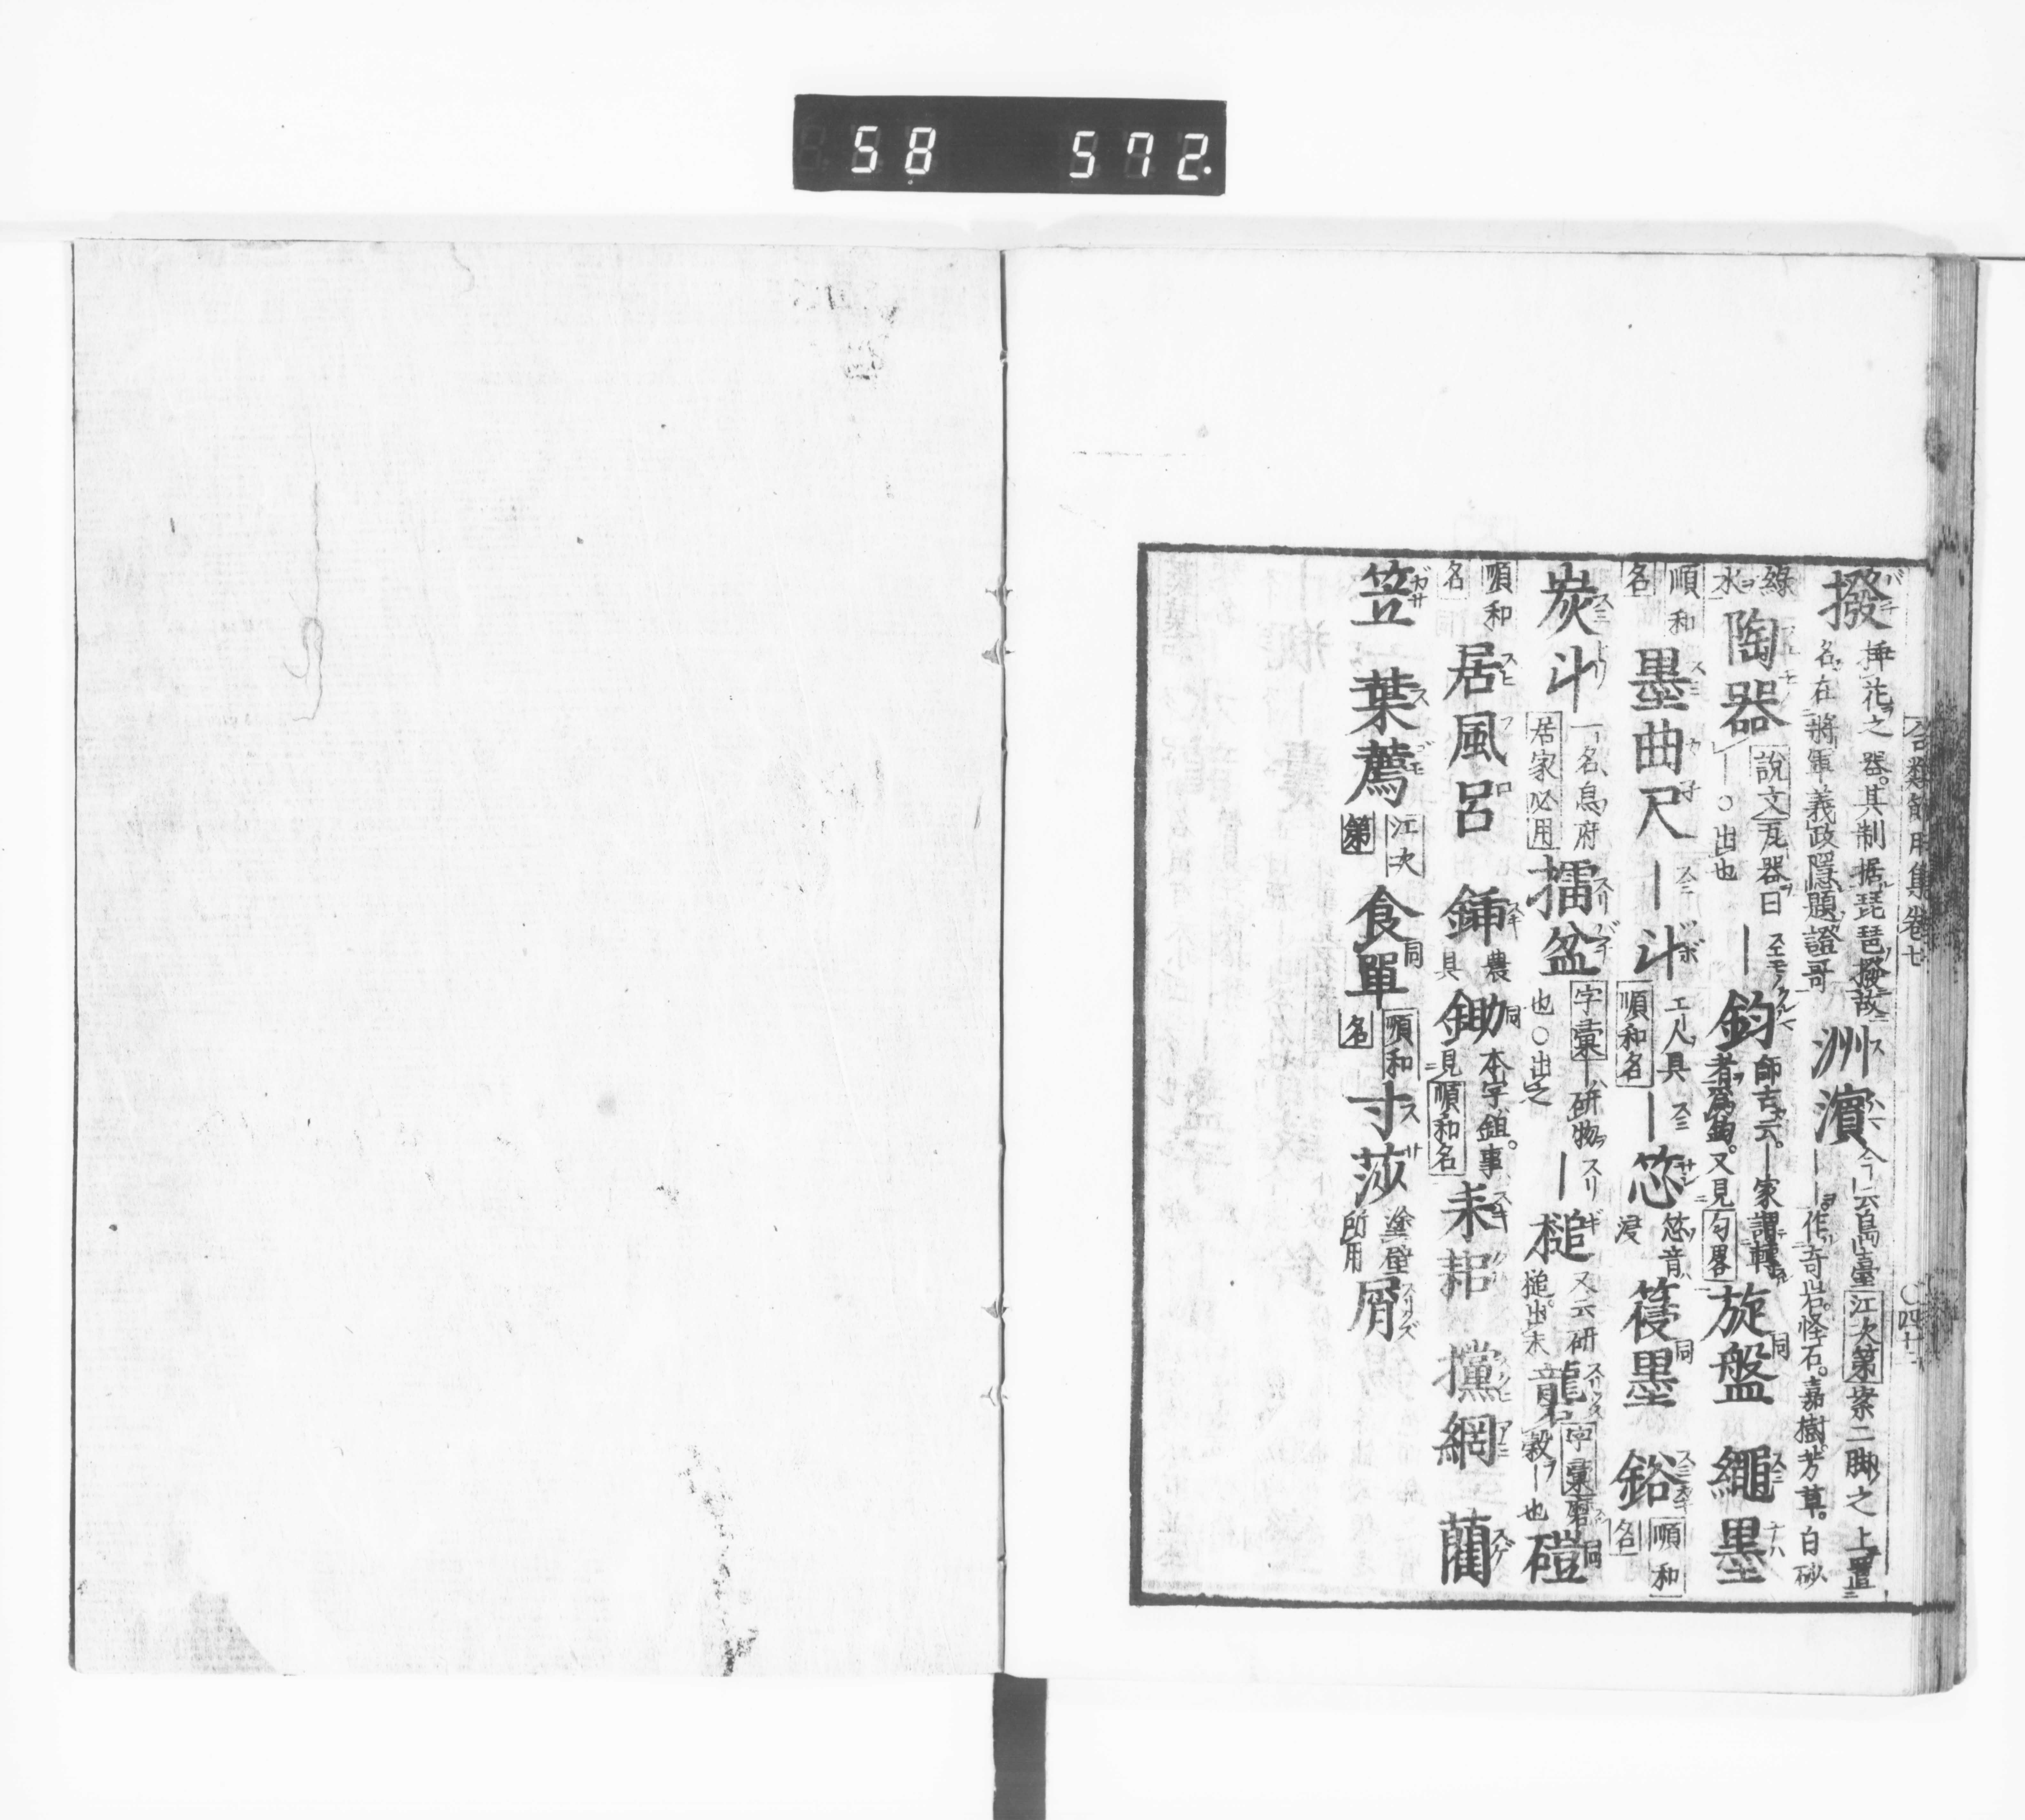 58 572.
合類節用集卷七 〇四十一
撥 挿花之器。其制据琵琶撥故名。在將軍義政隱題證哥 洲濱 今云島臺江次第案二脚之上置――作奇岩。怪石。嘉樹。芳草。白砂
綠水 陶器 説文瓦器曰―〇出也 ―鈞 師古云。―家謂轉者爲鈞。又見匀畧 旋盤 同 繩墨
順和名 墨曲尺 ―斗 工人具順和名 ―㤰 㤰音浸 篗墨 同 鉛 順和名
炭斗 一名烏府居家必用 擂盆 字彙―研物也〇出之 ―槌 又云研槌。出末 礱 字彙磨穀―也 磑 同
順和名 居風呂 鍤 農具 鋤 同 本字鉏。事見順和名 耒耜 攩網 藺
笠 葉薦 江次第 食單 同 順和名 寸莎 塗壁所用 屑